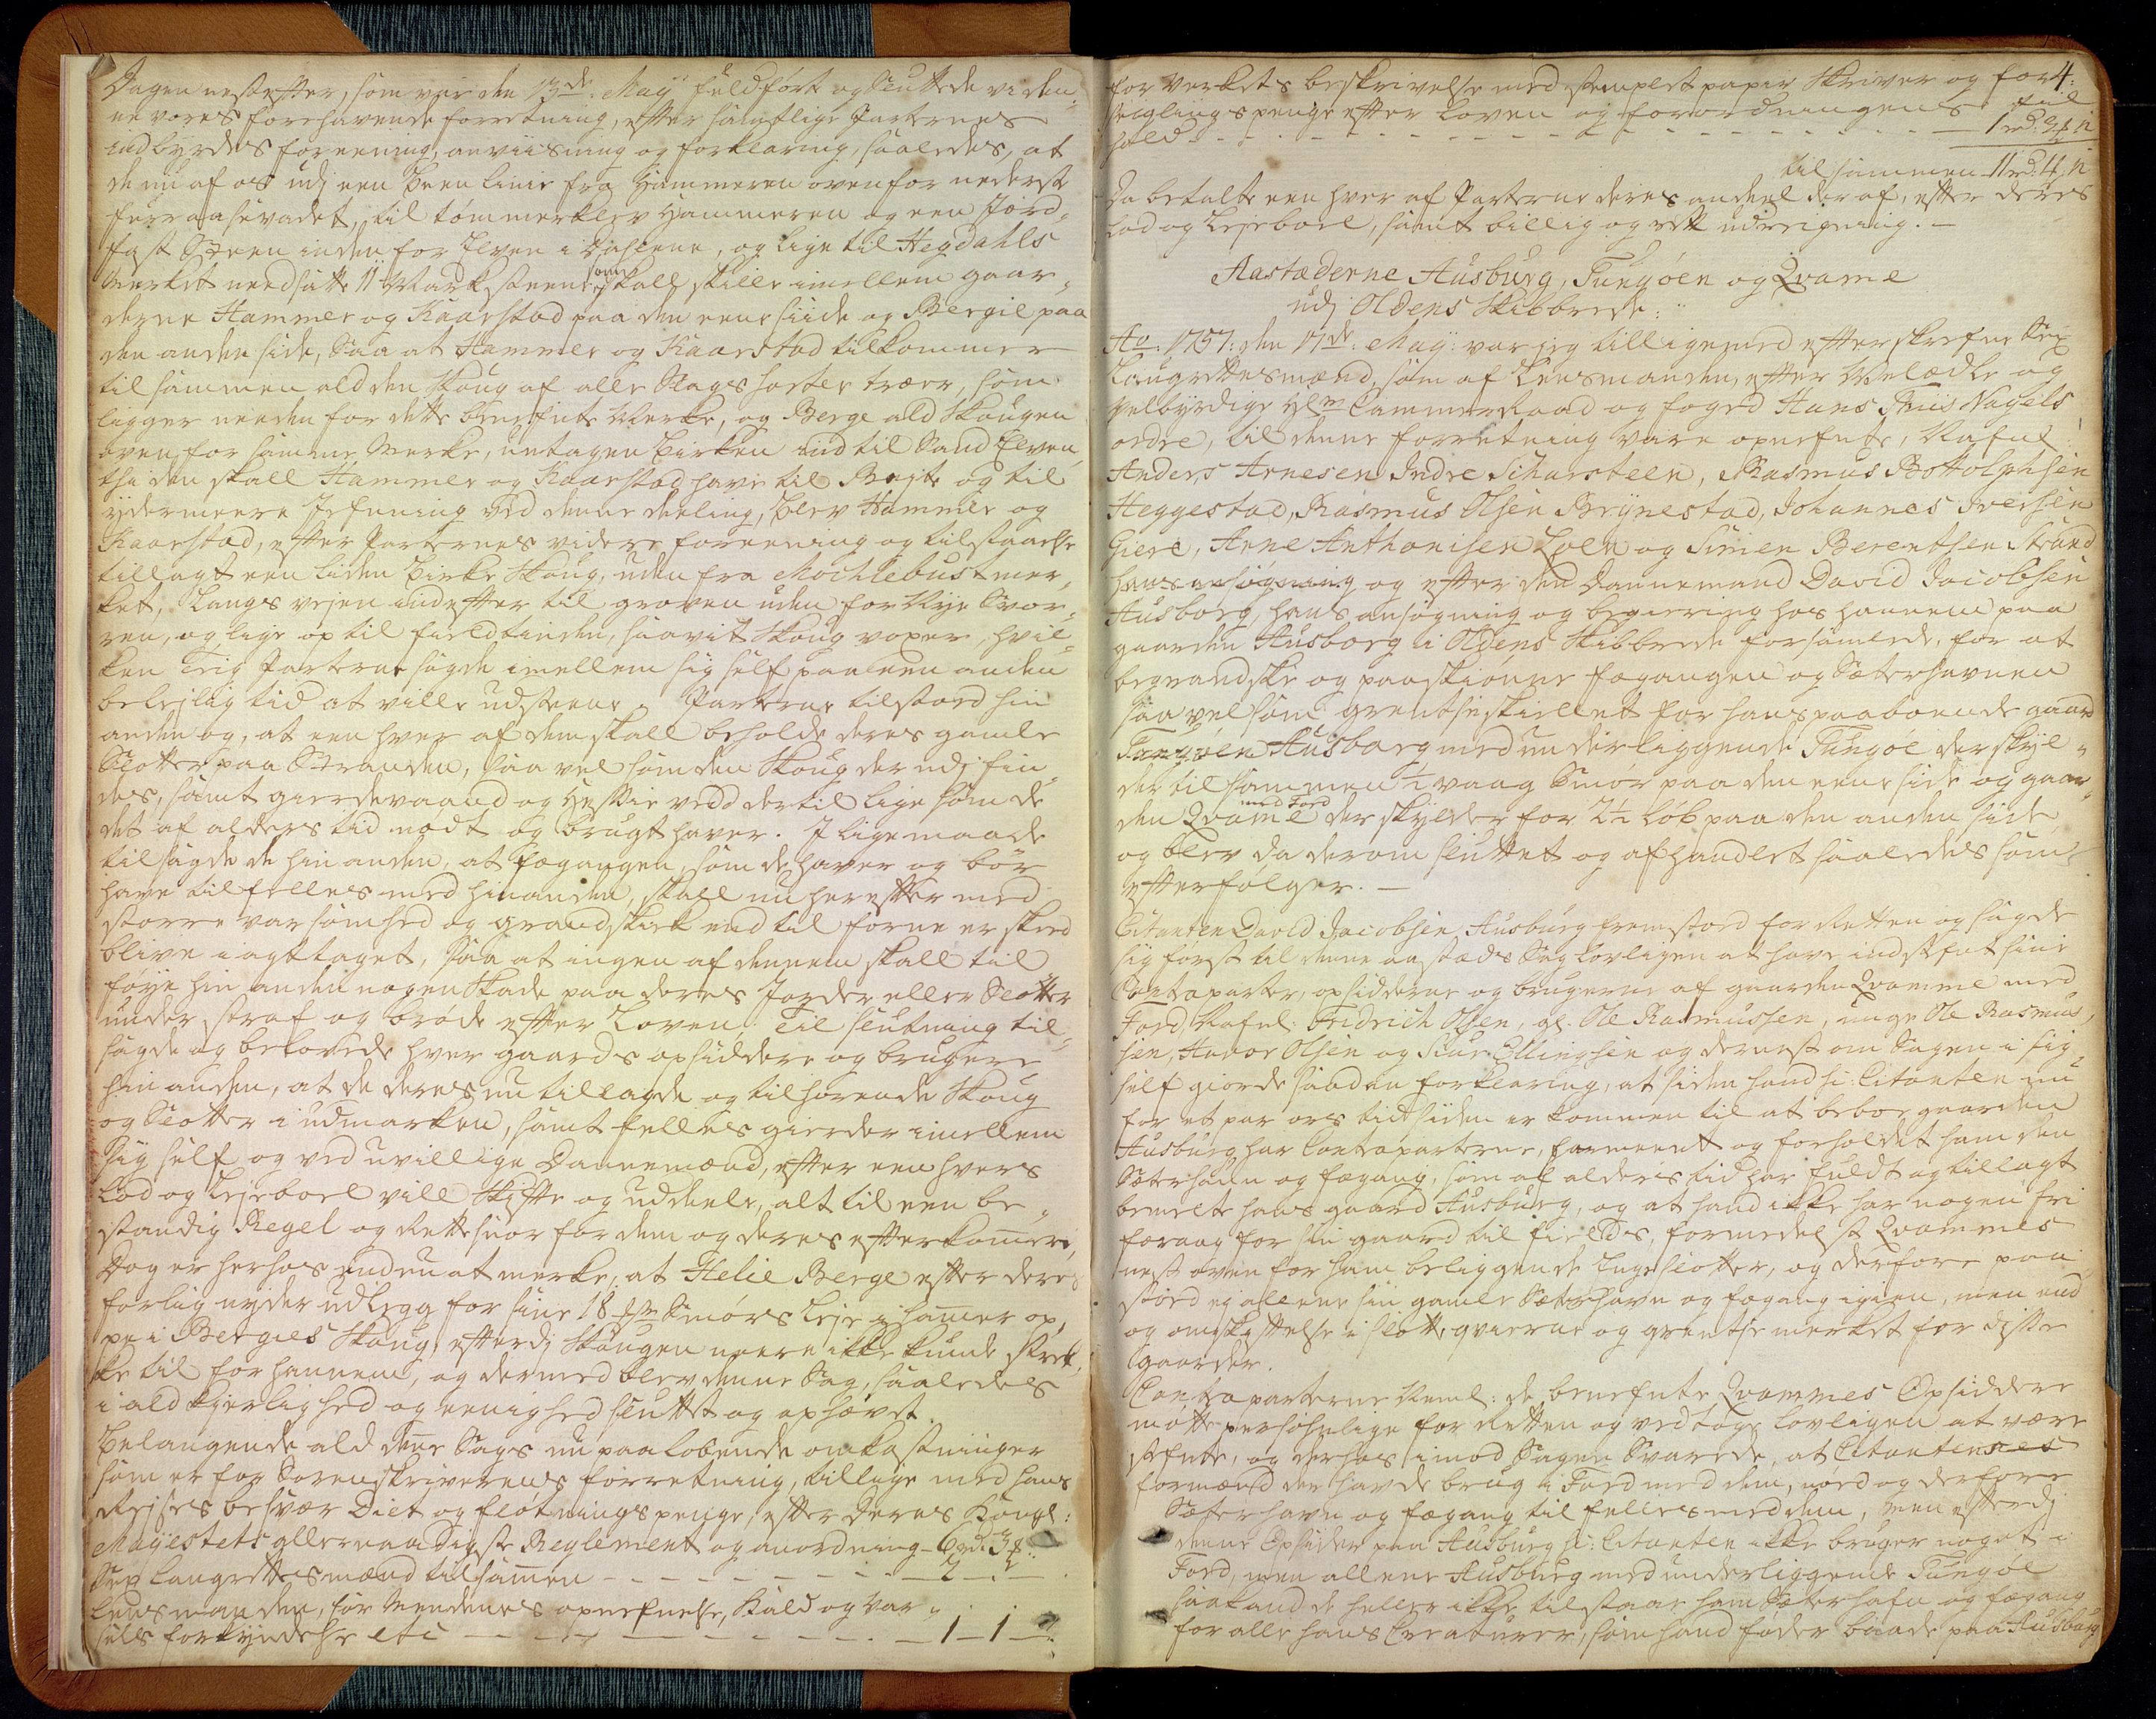 Dagen nest efter, som var den 13de: May fuldførte og sluttede vi den-
ne vores forehavende forretning, efter samtlige Parternes
indbyrdes foreening, anviisning og forklaring, saaledes, at
de nu af os udj een been linie fra Hammeren ovenfor nederste
furraasævadet, til tømmerklev Hammeren og een Jord-
fast Steen inden for Elven i Dahlene, og lige til Hegdahls
Merket nedsatte 11 Marksteene som skall skille imellem gaar-
derne Hammer og Kaarstad paa den eene siide og Bergie paa
den anden side, Saa at Hammer og Kaarstad tilkommer
til sammen ald den Skoug af alle Slags sorter træer, som
ligger neden for dette benefnte Merke, og Berge ald Skougen
oven for samme Merke, untagen Birken ind til Sand Elven,
thi den skall Hammer og Kaarstad have til Bejte og til
ydermeere Jefning ved denne deeling, blev Hammer og
Kaarstad, efter Parternes videre foreening og tilstaaelse
tillagt een liden Birke Skoug, uden fra Mochlebust mer-
ket, Langs vejen ind efter til groven uden for Nye Svor-
ren, og lige op til fieldtinden, saavit Skoug voxer, hvil-
ken Teig Parterne sagde imellem sig self paa een anden
belejlig tid at ville udsteene. Parterne tilstoed hin
anden og, at een hver af dem skall beholde deres gamle
Slotter paa Stranden, saa vel som den Skoug der udj fin-
des, samt gierdevaand og Hessie vedd dertil lige som de
det af alders tid nødt og brugt haver. J lige maade
tilsagde de hin anden, at fægangen, som de haver og bør
have til felles med hinanden, skall nu herefter med
større varsomhed og grandskik end til forne er skeed
blive iagttaget, saa at ingen af dennem skall til
føye hin anden nogen Skade paa deres Jorder eller Slotter
under straf og brøde efter Loven. Til slutning til-
sagde og belovede hver gaards opsiddere og brugere
hin anden, at de deres nu tillagde og tilhørende Skoug
og Slotter i udmarken, samt felles gierder imellem
sig self og ved uvillige Dannemænd, efter een hvers
Lod og Lejeboel vill skifte og uddeele, alt til een be-
standig Regel og Rettesnor for dem og deres efterkommere,
Dog er herhos endnu at merke, at Helie Berge efter deres
forlig nyder udlegg for sine 18 Smørs Leje i Hamer op,
pe i Bergies Skoug, efterdj Skougen neere ikke kunde strek-
ke til for hannem, og dermed blev denne Sag, saaledes
i ald kierlighed og eenighed sluttet og ophævet.
Belangende ald denne Sags nu paaløbende omkastninger
som er for Sorenskriverens forretning, tillige med hans
Rejses besvær Diet og flotnings penge, efter Deres Kongl:
Mayestets allernaadigste Reglement og anordning - 6 rd: 3
Sex Laugrettesmænd tilsamen - - - - - - - - 2 -
Lensmanden, for Mendenes opnefnelse, Kald og Var-
sels forkyndelse etc - - - - - - - - 1 - 1 -
4.
for Verkets beskrivelse med stemplet papiir Skriver og for-
seiglings penge efter Loven og forordningens
hold - - - - - - - - - 1 rd: 2
til sammen 11 rd: 4
Da betalte een hver af Parterne deres andeel deraf, efter deres
Lod og Lejeboel, samt billig og rett udreigning. -
Aastæderne Ausburg, Tungøen og Qvame
udj Oldens Skibbrede:
Ao: 1757: den 17de: May: var jeg tilligemed efterskrefne Sex
Laugrettesmænd, som af Lensmanden, efter Velædle og
Velbyrdige Hr: CammerRaad og foged Hans Thiis Nagels
ordre, til denne forretning vare opnefnte, Nafnl:
Anders Arnesen Indre Scharsteen, Rasmus Bottolphsen
Heggestad, Rasmus Olsen Brynestad, Johannes Iversen
Giere, Arne Anthonisen Loen og Simen Berentsen Strand
hans ansøgning og efter den Dannemand David Jacobsen
Ausborg, hans ansøgning og begiering hos hannem paa
gaarden Ausborg i Oldens Skibbrede forsamlede, for at
begrandske og paaskiønne fægangen og Sæterhavnen
saavelsom grentse skiellet for hans paaboende gaard
Tungøen Ausborg med underliggende Tungøe der skyl-
der til sammen 1/2 vaag Smør paa den eene side og gaar-
den Qvame med Ford der skylder for 2 1/2 løb paa den anden side
og blev da derom sluttet og afhandlet saaledes som
efterfølger. -
Citanten David Jacobsen Ausburg fremstoed for Retten og sagde
sig først til denne aastæds Sag lovligen at have indstefnt sine
Contraparter, opsidderne og brugerne af gaarden Qvamme med
Ford, Nafnl: Fridrich Olsen, gl. Ole Rasmussen, unge Ole Rasmus-
sen, Anvor Olsen og Siur Ellingsen og dernest om Sagen i sig
self giorde saadan forklaring, at siden hand s: Citanten nu
for et par ors tid siden er kommen til at beboe gaarden
Ausburg har Contraparterne formeent og forholdet ham den
Sæterhavn og fægang, som af alders tid har fuldt og tillagt
bemelte hans gaard Ausburg, og at hand ikke har nogen fri
færang for sin gaard til fields, formedelst Qvammes
nest oven for ham beliggende Enge slotter, og derfore paa-
stoed ej alleene sin gamle Sæterhavn og fægang igien, men end
og omskiftelse i slotte qvierne og grentse merket for disse
gaarder.
Contraparterne Neml: de benefnte Qvammes Opsiddere
møtte personlige for Retten og vedtoge lovligen at være
stefnte, og derhos imod Sagen Svarede, at Citantennes
formænd der havde brug i Ford med dem, noed og derfore
Sæterhavn og fægang til felles med dem, men efterdj
denne Opsider paa Ausburg s: Citanten ikke bruger noget i
Ford, men allene Ausburg med underliggende Tungøe
saa kand de heller ikke tilstaae ham Sæterhafn og fægang
for alle hans Creaturer, som hand føder baade paa Ausburg